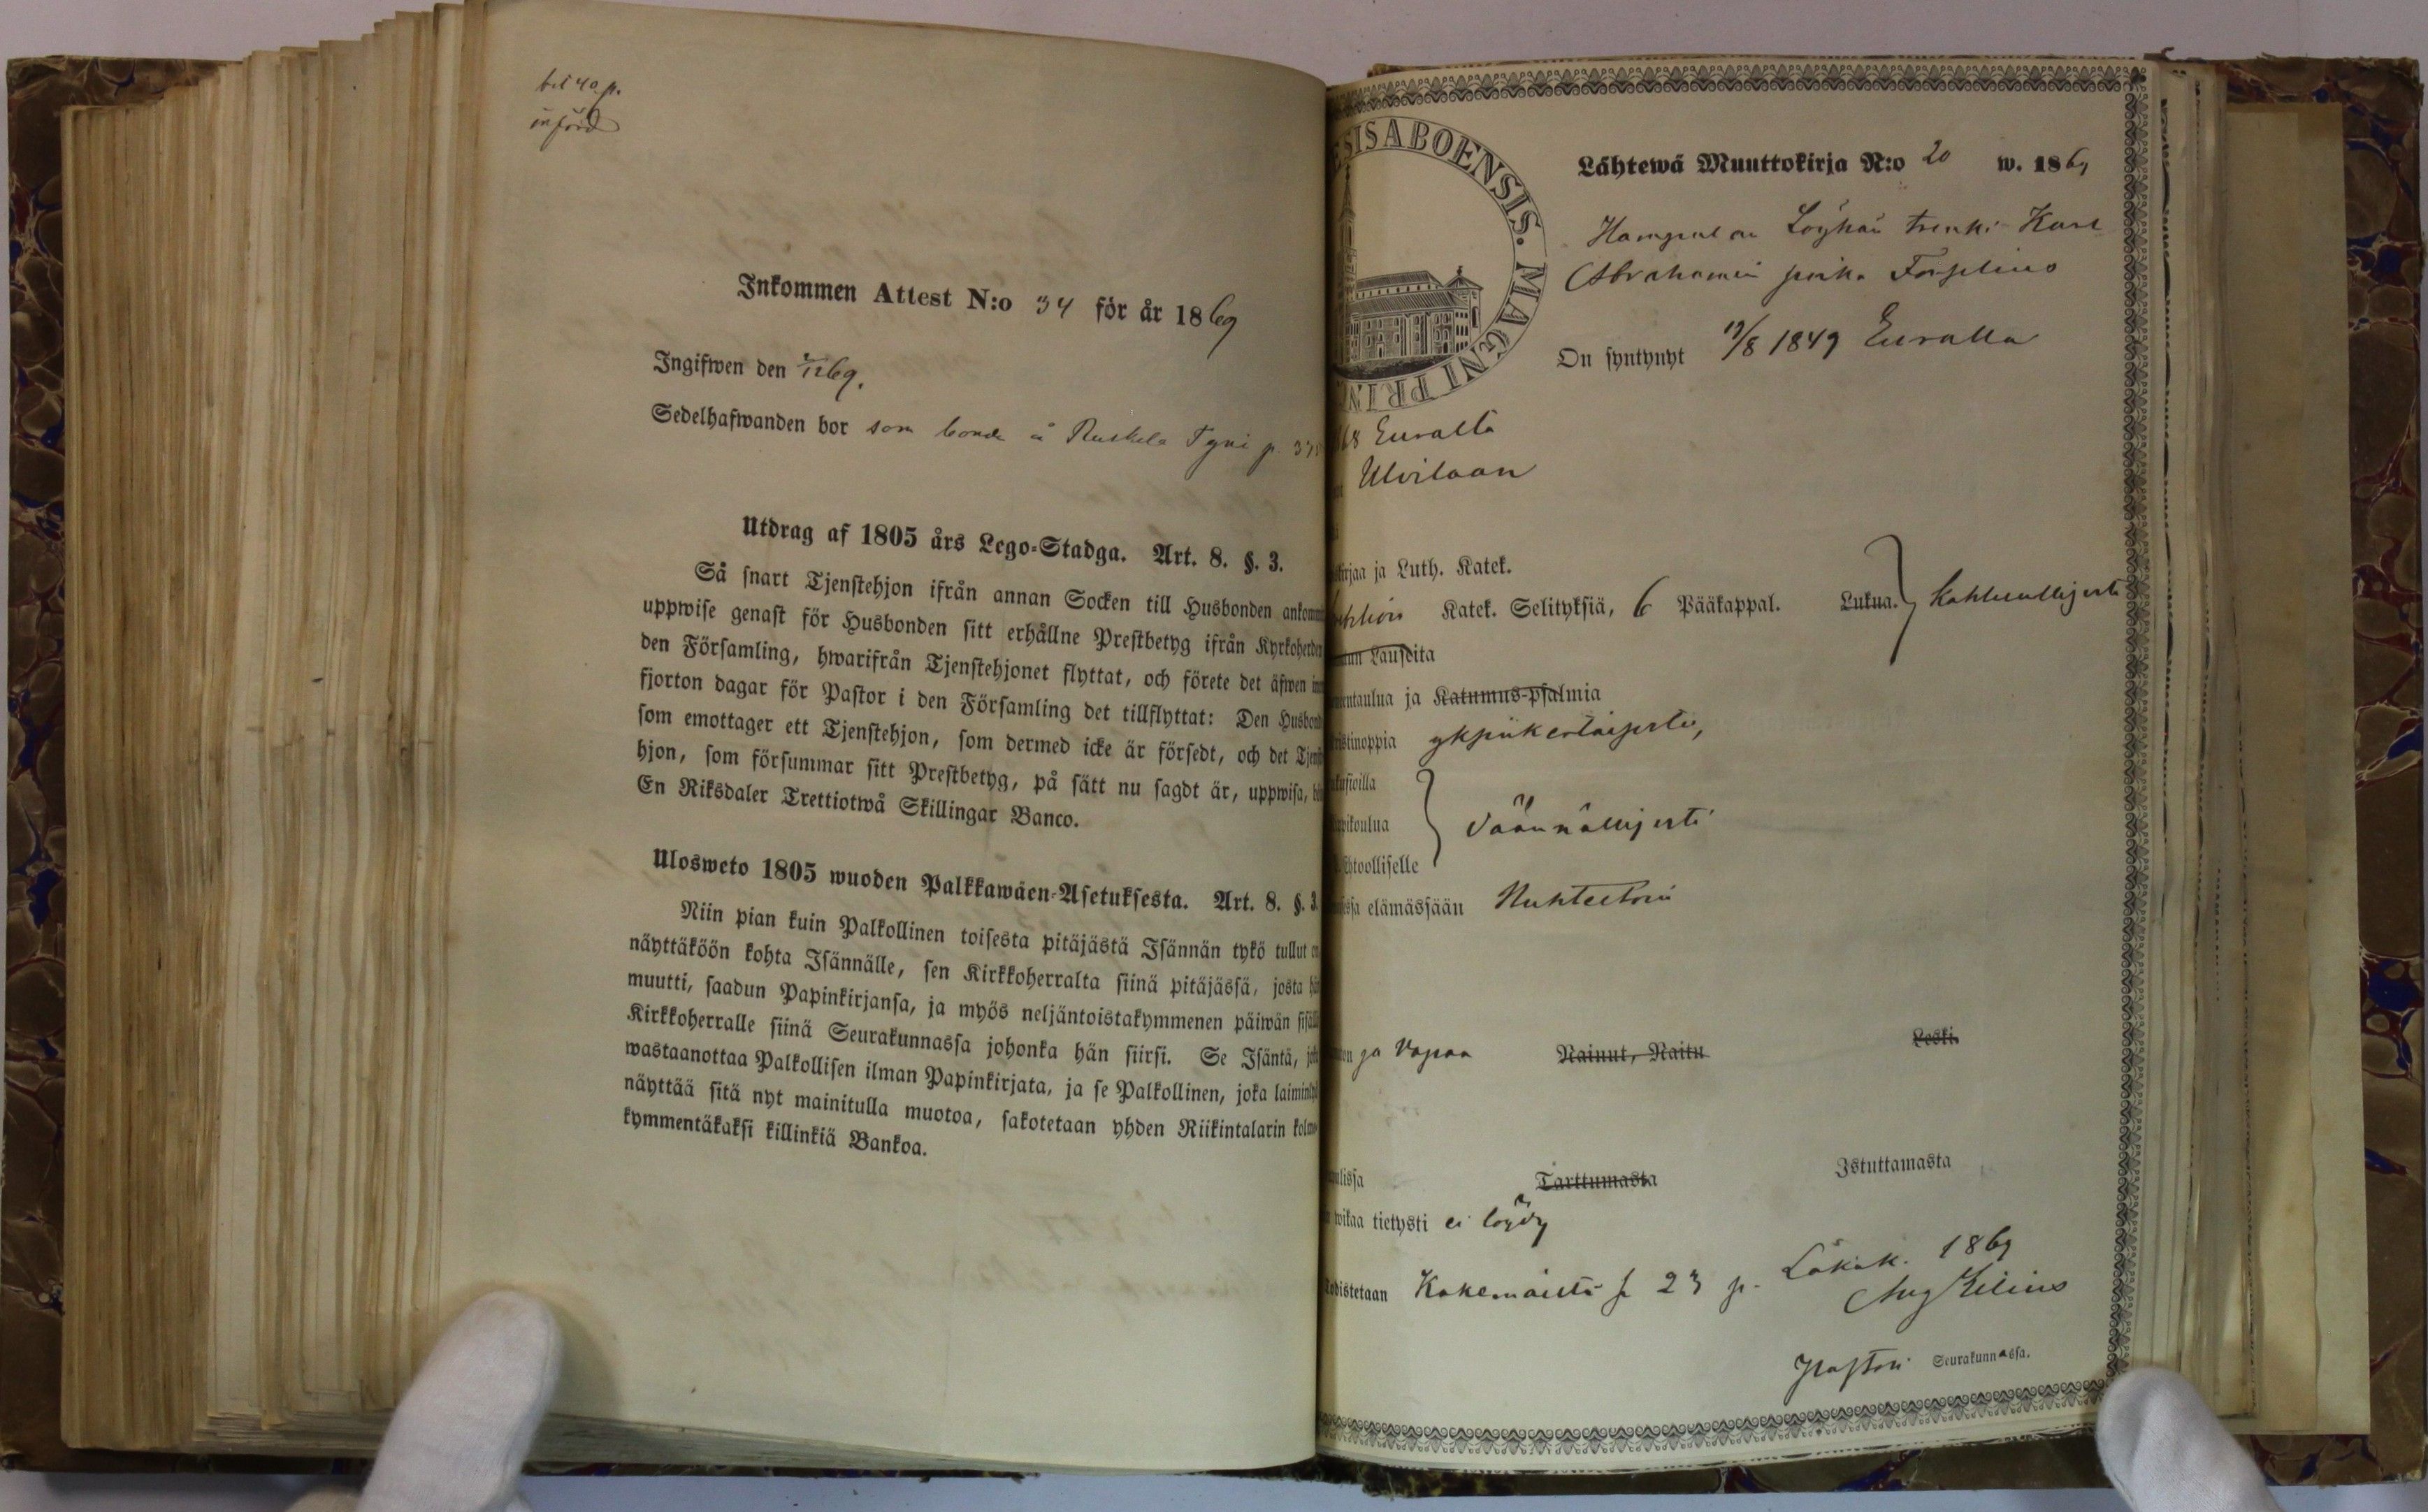 bet 40 p.
införd
Inkommen Attest N:o 34 för år 1869
Ingifwen den 69.
Sedelhafwanden bor som bonde å Ruskela Tyni p.
Utdrag af 1805 års Lego-Stadga. Art. 8. §. 3.
Så snart Tjenstehjon ifrån annan Socken till Husbonden ankomm
uppwise genast för Husbonden sitt erhållne Prestbetyg ifrån Kyrkoherden
den Församling, hwarifrån Tjenstehjonet flyttat, och förete det äfwen inn
fjorton dagar för Pastor i den Församling det tillflyttat: Den Husbond
som emottager ett Tjenstehjon, som dermed icke är försedt, och det Tjenst
hjon, som försummar sitt Prestbetyg, på sätt nu sagdt är, uppwisa, bö
En Riksdaler Trettiotwå Skillingar Banco.
Ulosweto 1805 wuoden Palkkawäen-Asetuksesta. Art. 8. §. 3.
Niin pian kuin Palkollinen toisesta pitäjästä Isännän tykö tullut on
näyttäköön kohta Isännälle, sen Kirkkoherralta siinä pitäjässä, josta hän
muutti, saadun Papinkirjansa, ja myös neljäntoistakymmenen päiwän sisällä
Kirkkoherralle siinä Seurakunnassa johonka hän siirsi. Se Isäntä, joka
wastaanottaa Palkollisen ilman Papinkirjata, ja se Palkollinen, joka laiminlyö
näyttää sitä nyt mainitulla muotoa, sakotetaan yhden Riikintalarin kolme-
kymmentäkaksi killinkiä Bankoa.
ESISABOENSIS. MAGNI PRIN
Lähtewä Muuttokirja N:o 20 w. 1869
Löyhän trenki Karl
Abrahamin poika Forselius
On syntynyt 19/8 1849 Euralla
68 Euralta
Ulvilaan
kirjaa ja Luth. Katek.
Katek. Selityksiä, 6 Pääkappal. Lukua. Kohtuullisesti
un Lauseita
mentaulua ja Katumus-psalmia
istinoppia ykspuikertaisesti,
kusioilla
pikoulua Säännöllisesti
htoolliselle
ssa elämässään Nuhteeton
on ja vapaa Nainut, Naitu Leski.
ulissa Tarttumasta Istuttamasta
wikaa tietysti ei löydy
Todistetaan Kokemäeltä s 23 p. Lokak. 1869
Aug Kilius
Pastori Seurakunnassa.